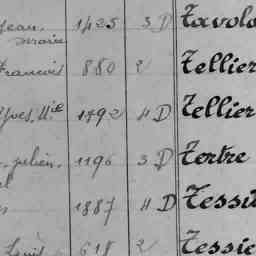 Jean. 1425 3 D Tavolo
Marie
Francois 880 2 Tellier
Yves, Mie 1792 4 D Tellier
Julien. 1196 3 D Tertre
1887 4 D Tessi
Louis 618 2 Tessie